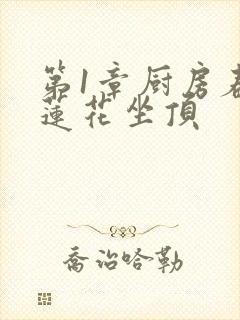 第1章厨房
蓮花坐頂
喬治哈勒